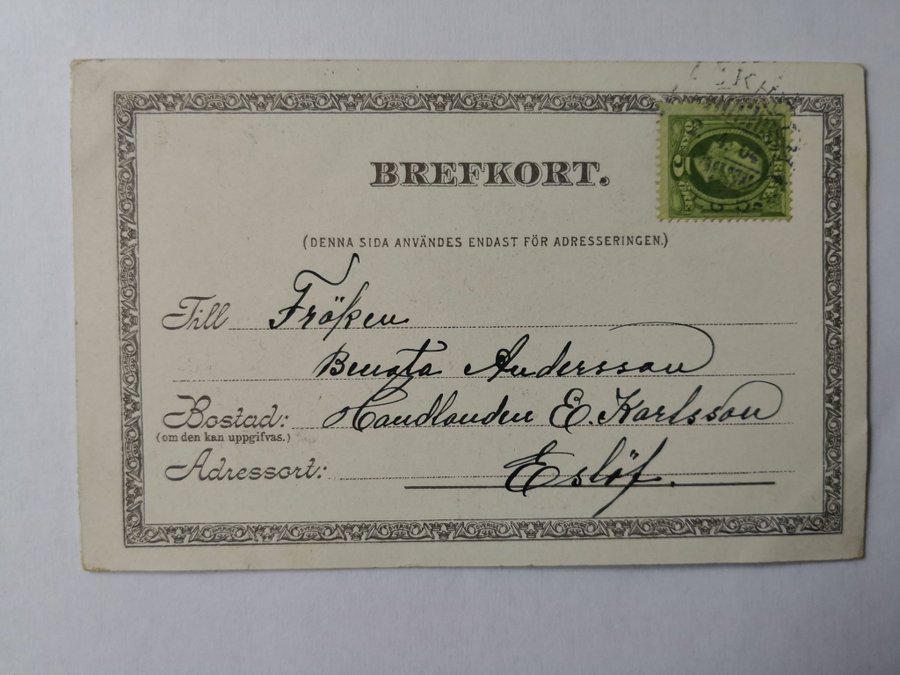 BREFKORT.
(DENNA SIDA ANVÄNDES ENDAST FÖR ADRESSERINGEN.)
Till Fröken
Benata Andersson
Bostad: Handlanden E. Karlsson
(om den kan uppgifvas.)
Adressort: Eslöf.
5